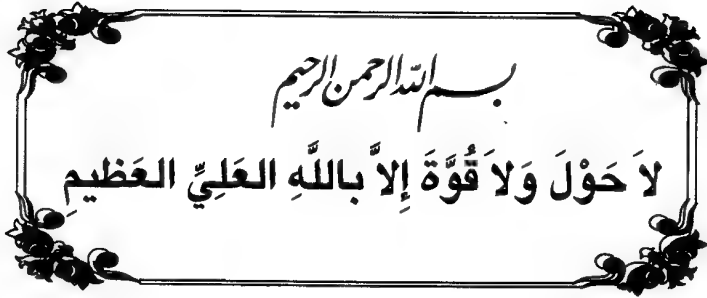 بسم الله الرحمن الرحيم
لاَ حَوْلَ وَلاَ قُوَّةَ إِلاَّ بِاللَّهِ العَلِيِّ العَظِيمِ